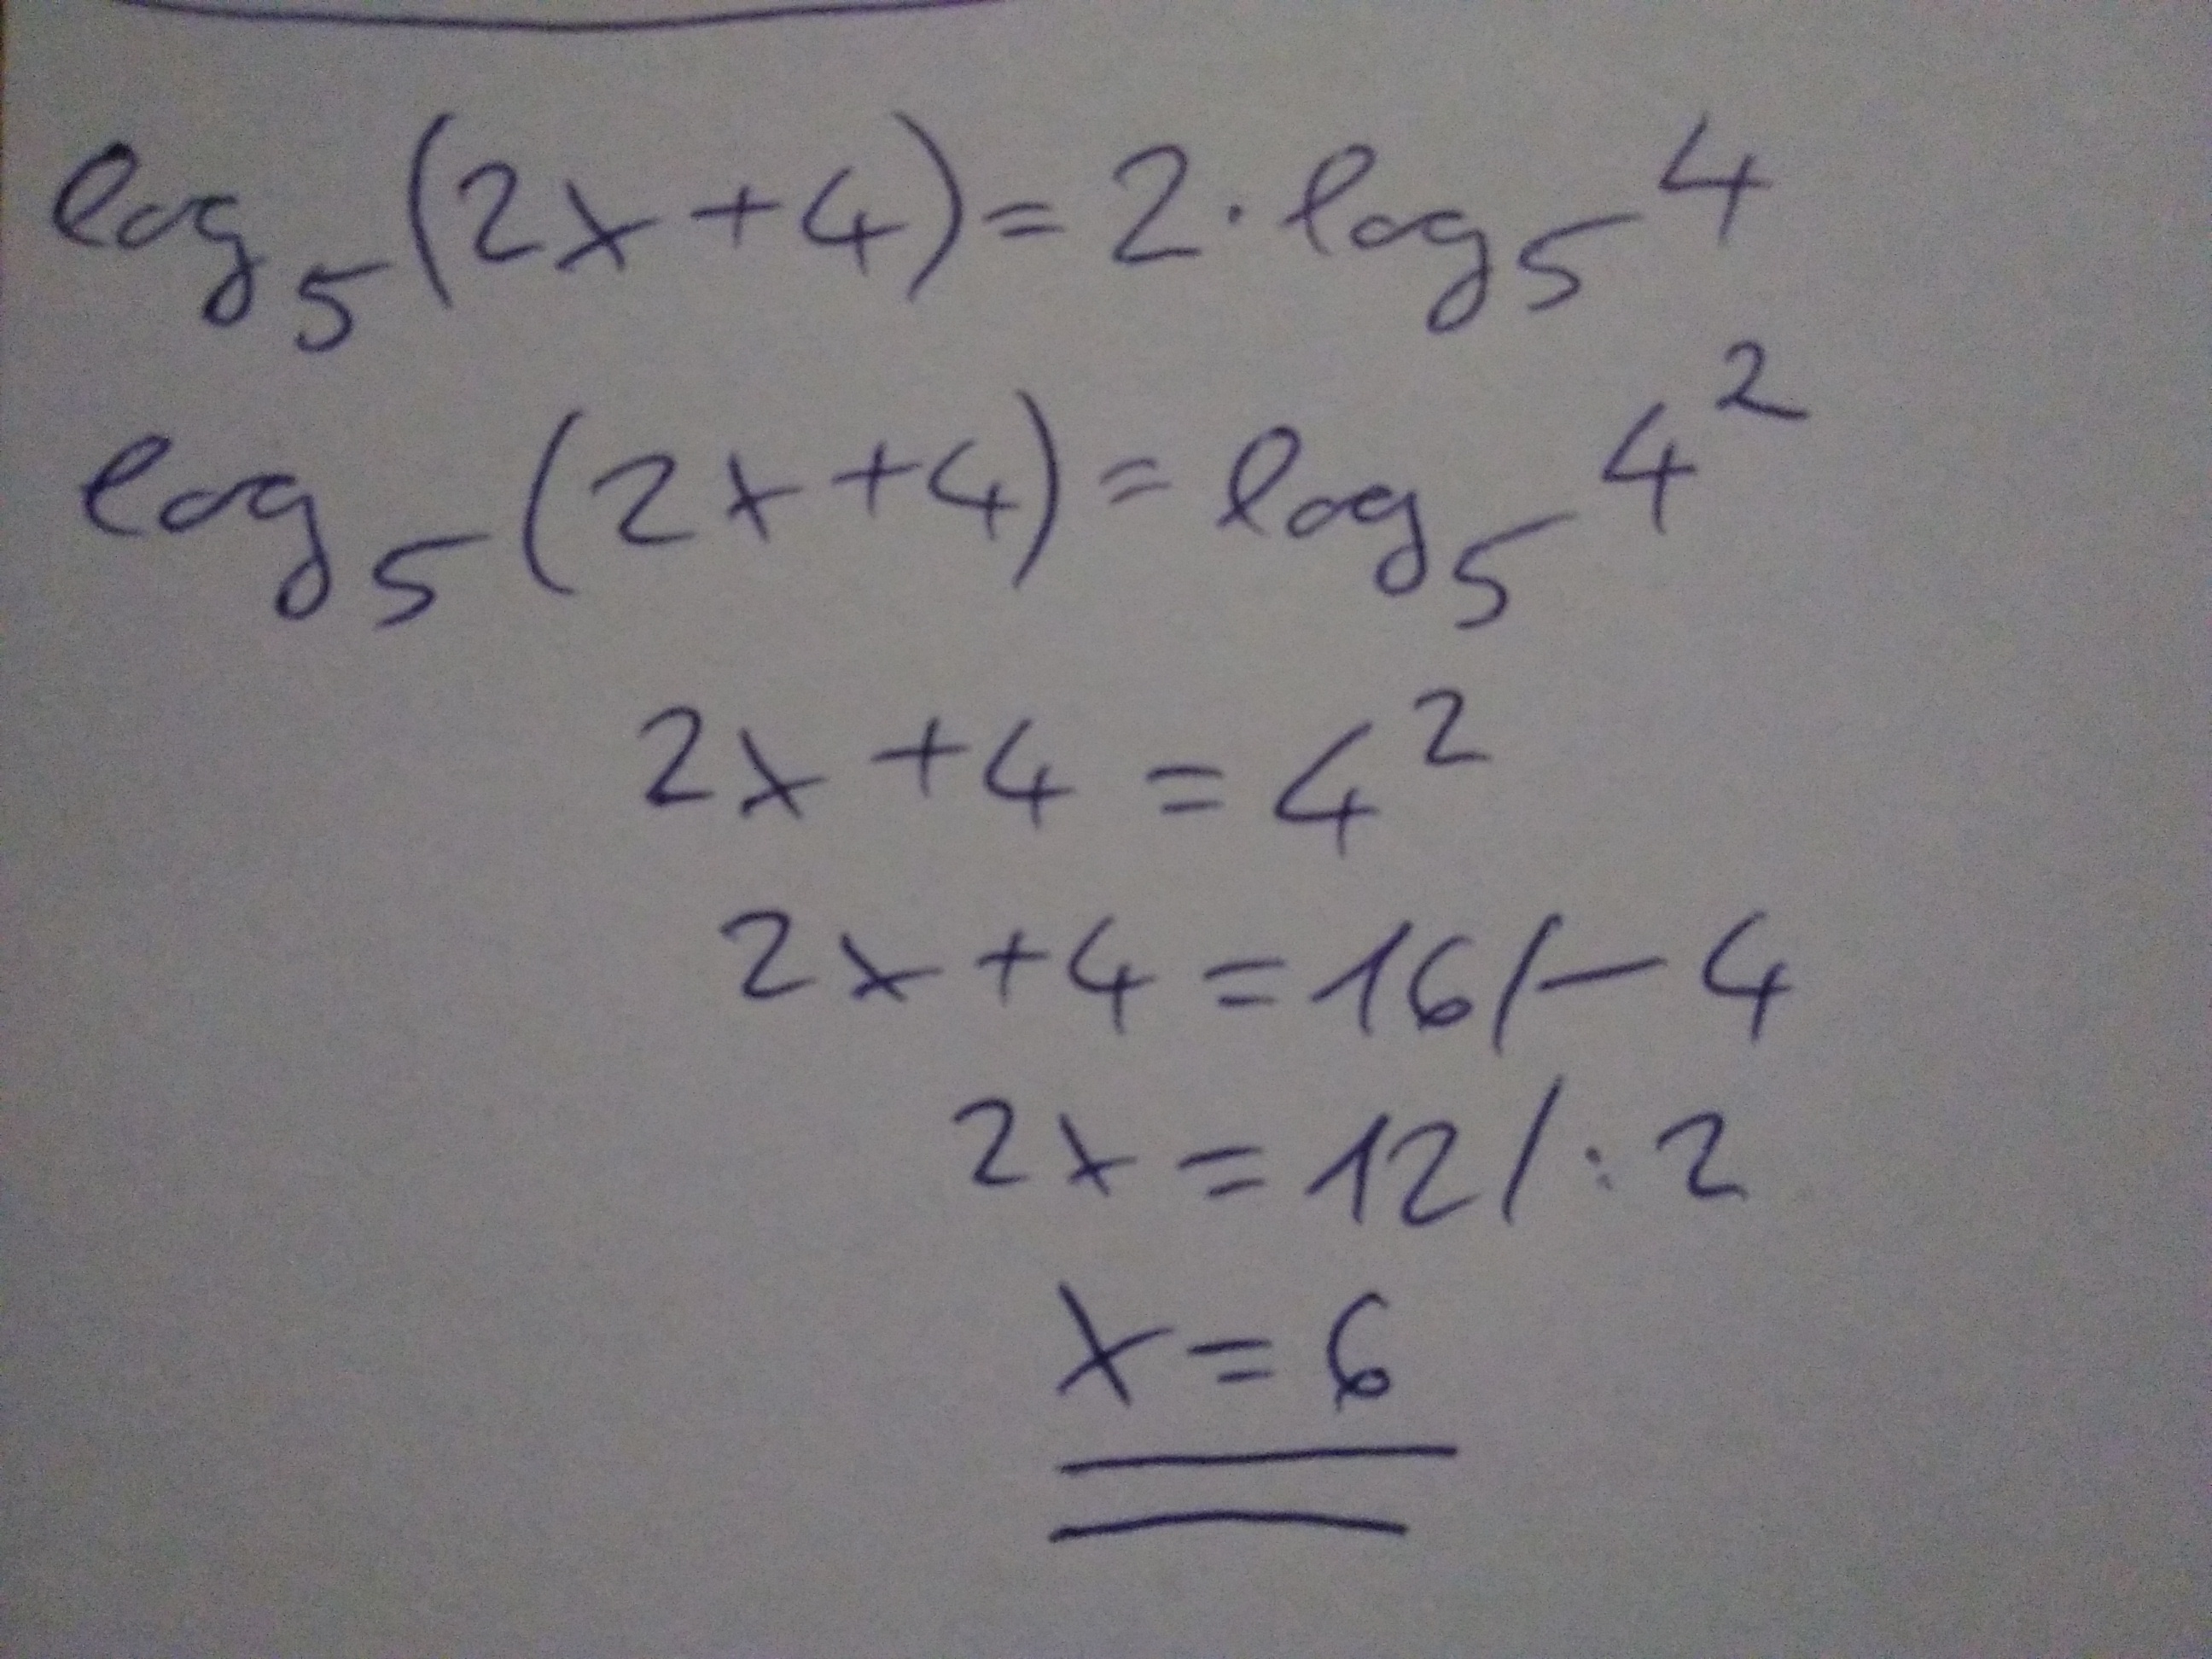 log₅(2x+4)=2·log₅4
log₅(2x+4)=log₅4²
2x+4=4²
2x+4=16/-4
2x=12/:2
x=6